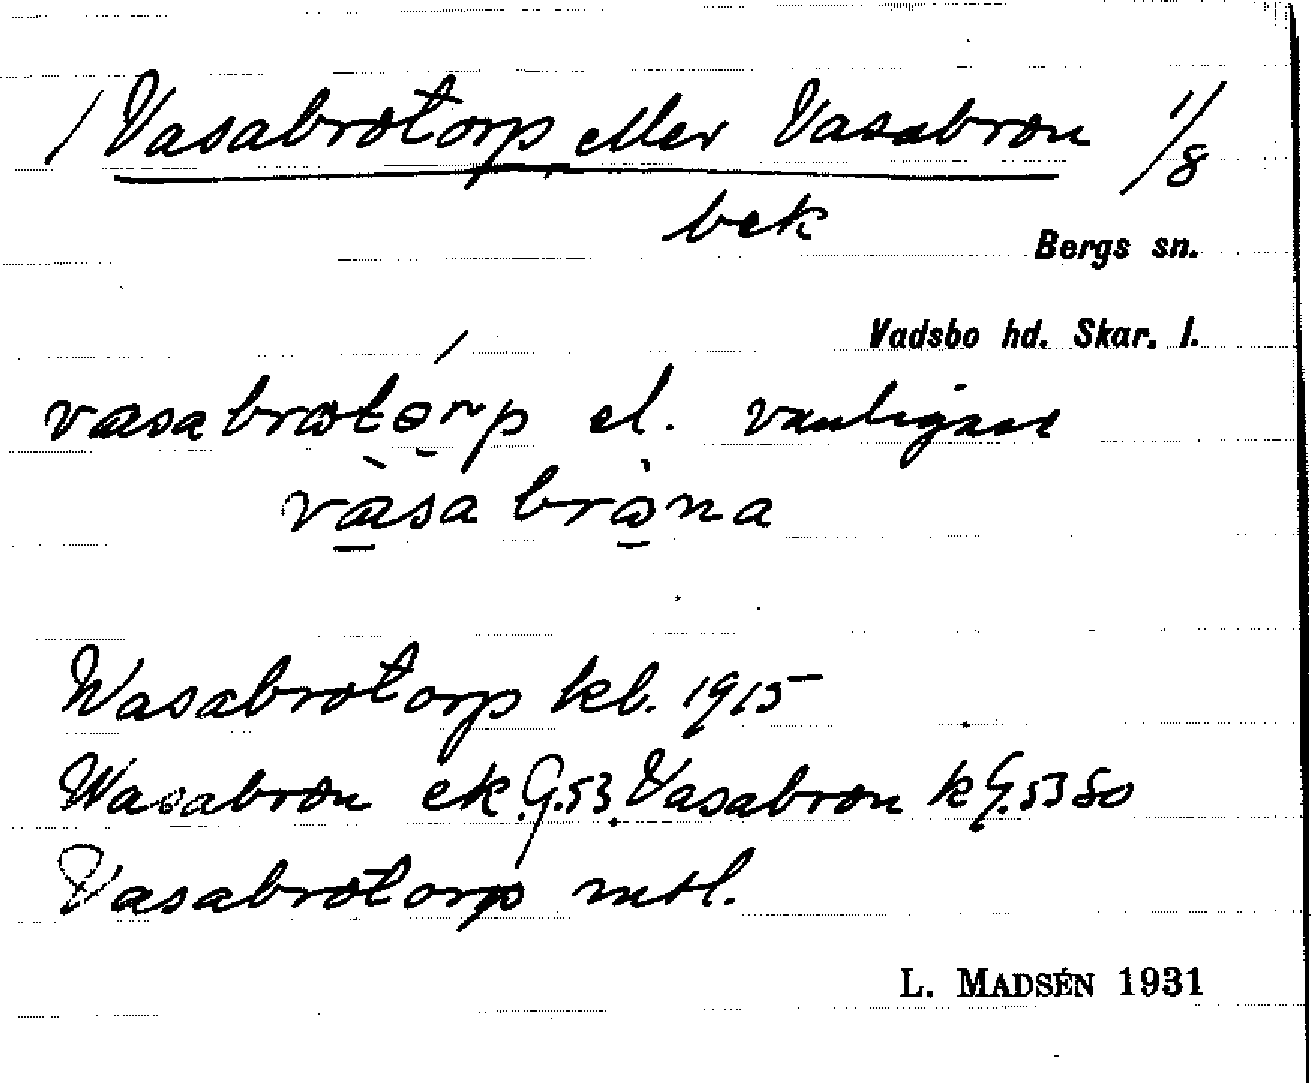 / Vasabrotorp eller Vasabron 1/8
bek
Bergs sn.
Vadsbo hd. Skar. l.
vasabrotorp el. vanligast
vasa brona
Wasabrotorp kb. 1915
Wasabron ek. G.53. Vasabron k G.53 80
Vasabrotorp mtl.
L. MADSÉN 1931